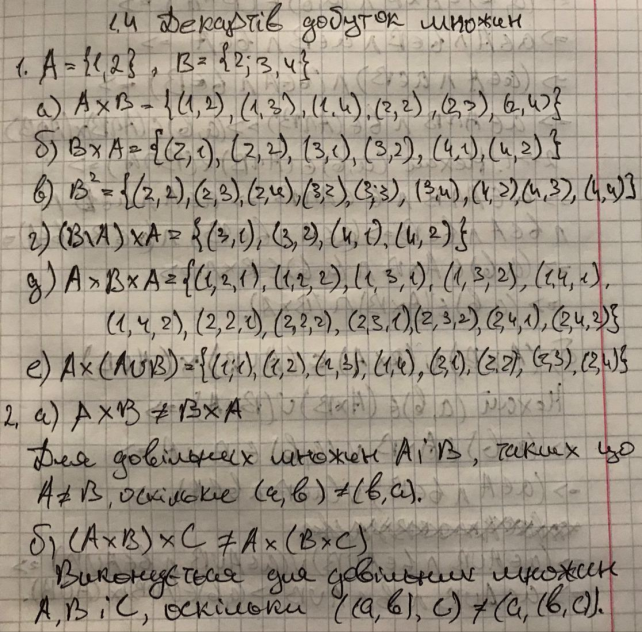 1.4 Декартів добуток множин
1. A = {1,2}, B = {2; 3, 4}
а) A×B = {(1,2), (1,3), (1,4), (2,2), (2,3), (2,4)}
б) B×A = {(2,1), (2,2), (3,1), (3,2), (4,1), (4,2)}
в) B² = {(2,2), (2,3), (2,4), (3,2), (3;3), (3,4), (4,2) (4,3), (4,4)}
г) (B\A)×A = {(3,1), (3,2), (4,1), (4,2)}
д) A×B×A = {(1,2,1), (1,2,2), (1,3,1), (1,3,2), (1,4,1),
(1,4,2), (2,2,1), (2,2,2), (2,3,1) (2,3,2), (2,4,1), (2,4,2)}
е) A×(A∪B) = {(1;1), (1,2), (1,3); (1,4), (2,1), (2,2), (2,3), (2,4)}
2. а) A×B ≠ B×A
Для довільних множин A і B, таких що
A≠B, оскільки (a,b) ≠ (b,a).
б) (A×B)×C ≠ A×(B×C)
Виконується для довільних множин
A, B і C, оскільки ((a,b), c) ≠ (a, (b,c)).